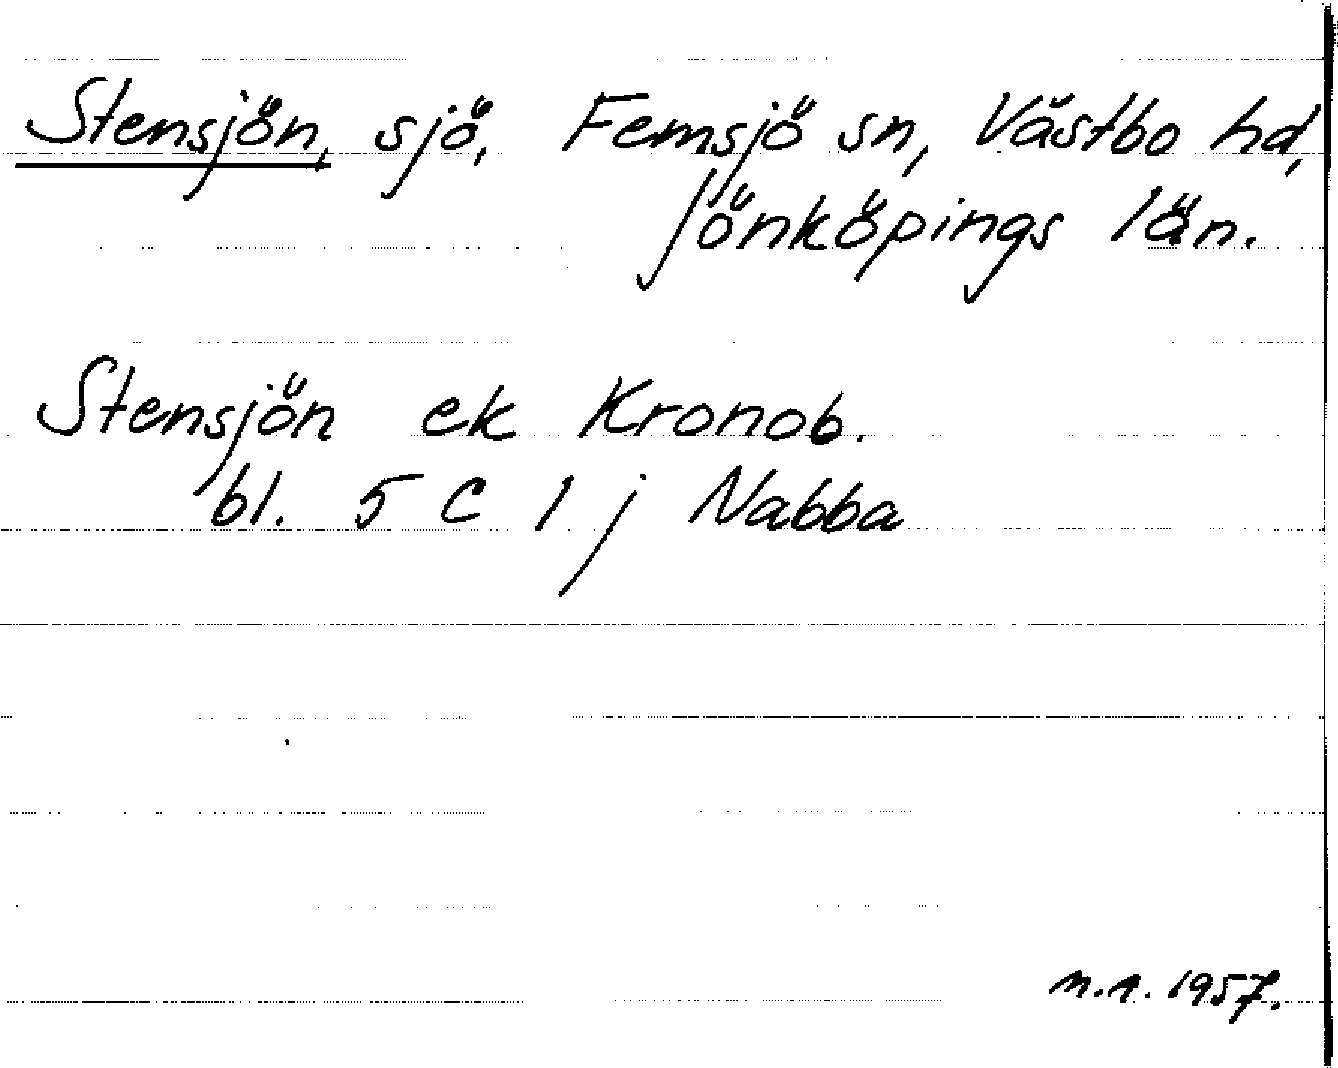 Stensjön, sjö, Femsjö sn, Västbo hd,
Jönköpings län.
Stensjön ek Kronob.
bl. 5 C 1 j Nabba
1957.